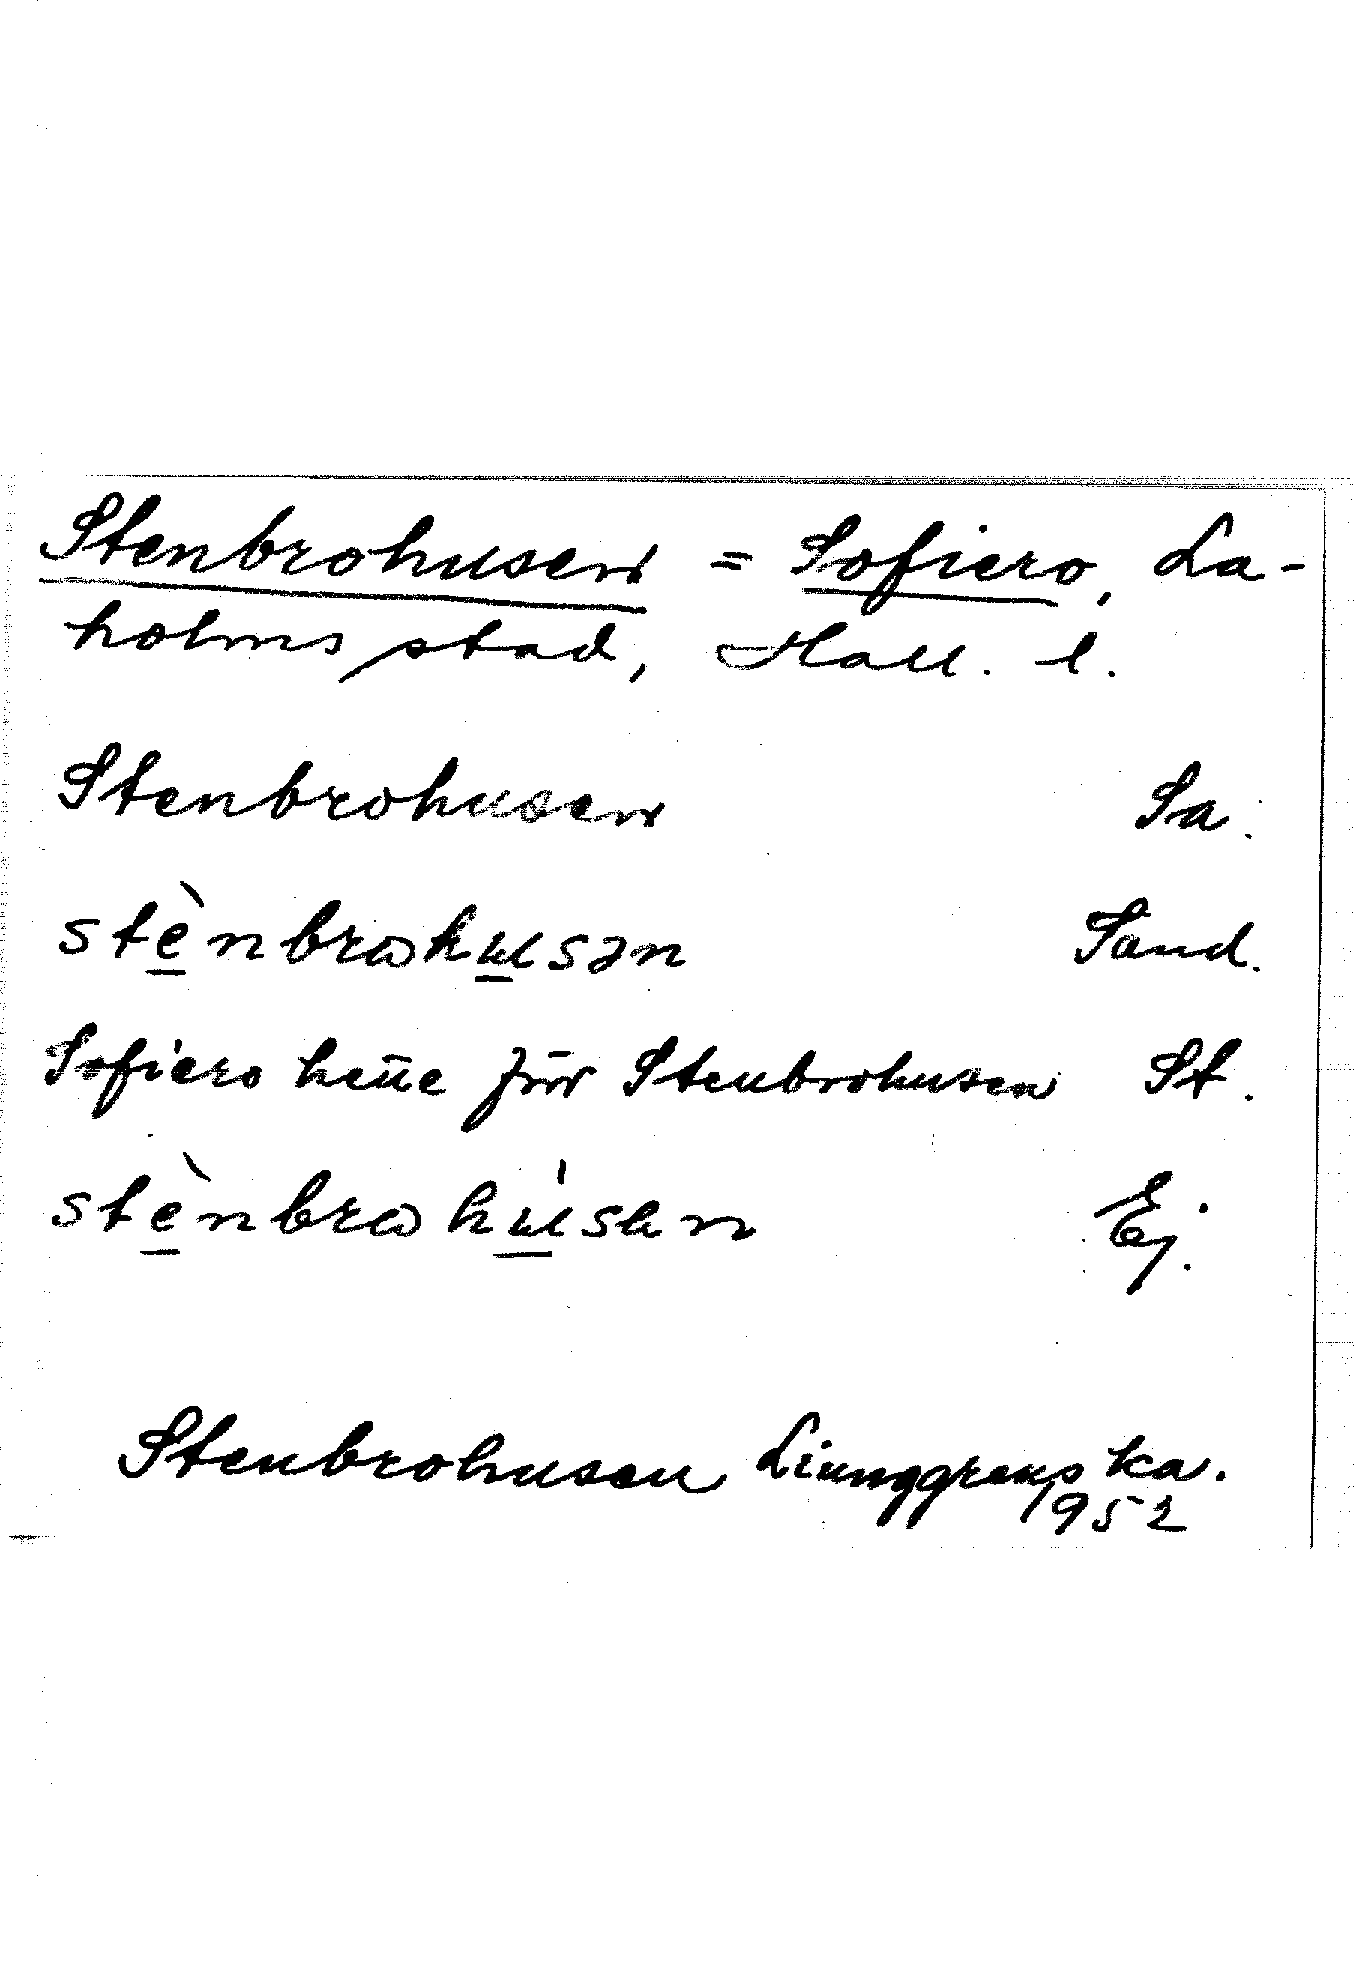 Stenbrohusen = Sofiero, La-
holms stad, Hall. l.
Stenbrohusen Sa.
stènbrωhusən Sand.
Sofiero hette förr Stenbrohusen St.
stènbrωhúsen Ej.
Stenbrohusen Ljunggrens ka.
1952